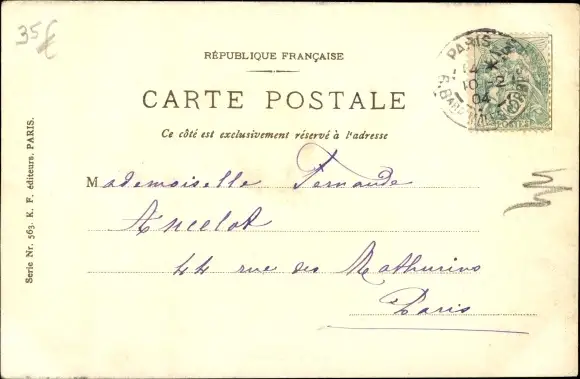 35€
RÉPUBLIQUE FRANÇAISE
CARTE POSTALE
Ce côté est exclusivement réservé à l'adresse
Mademoiselle Fernande
Ancelot
44 rue des Mathurins
Paris
Serie Nr. 563. K. F. éditeurs, PARIS.
PARIS
10 -2
04
POSTES